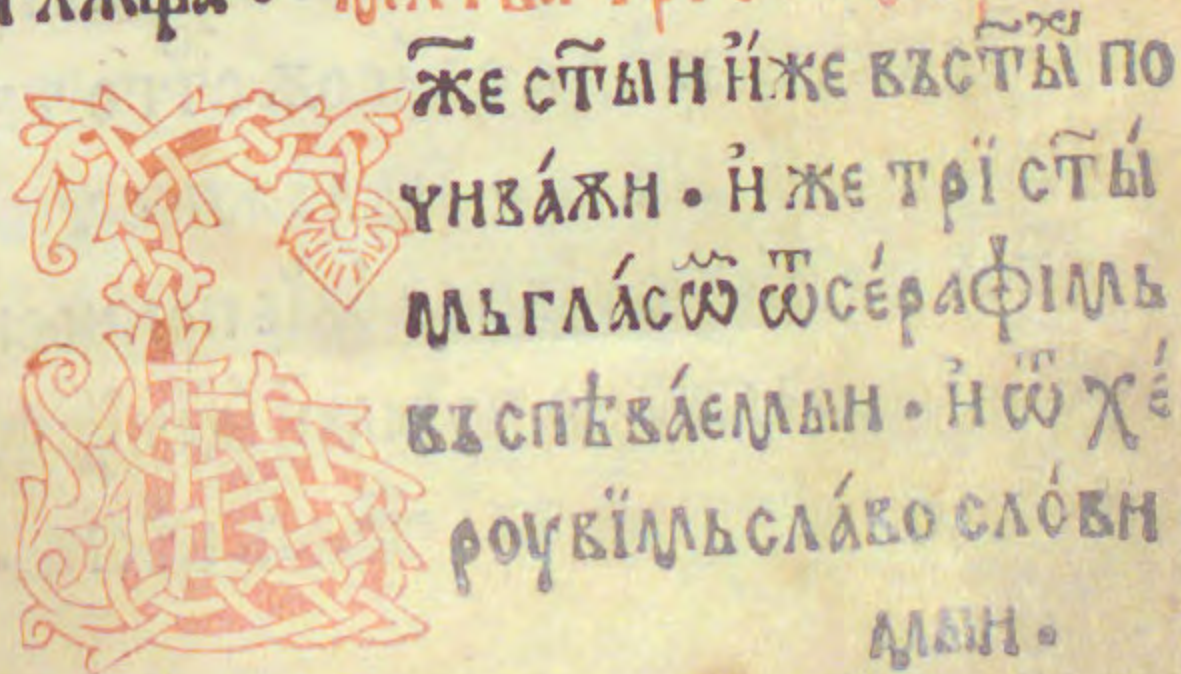 Бж҃е ст҃ыи и҆́же въст҃ы́ⷯ по
чива́ѫи · и҆ же трї ст҃ы́
мьгла́сѡⷨ ѿсе́рафімь
въспѣва́емыи · и҆ ѿ хе́
роувїмьсла́во сло́ви
мыи ·